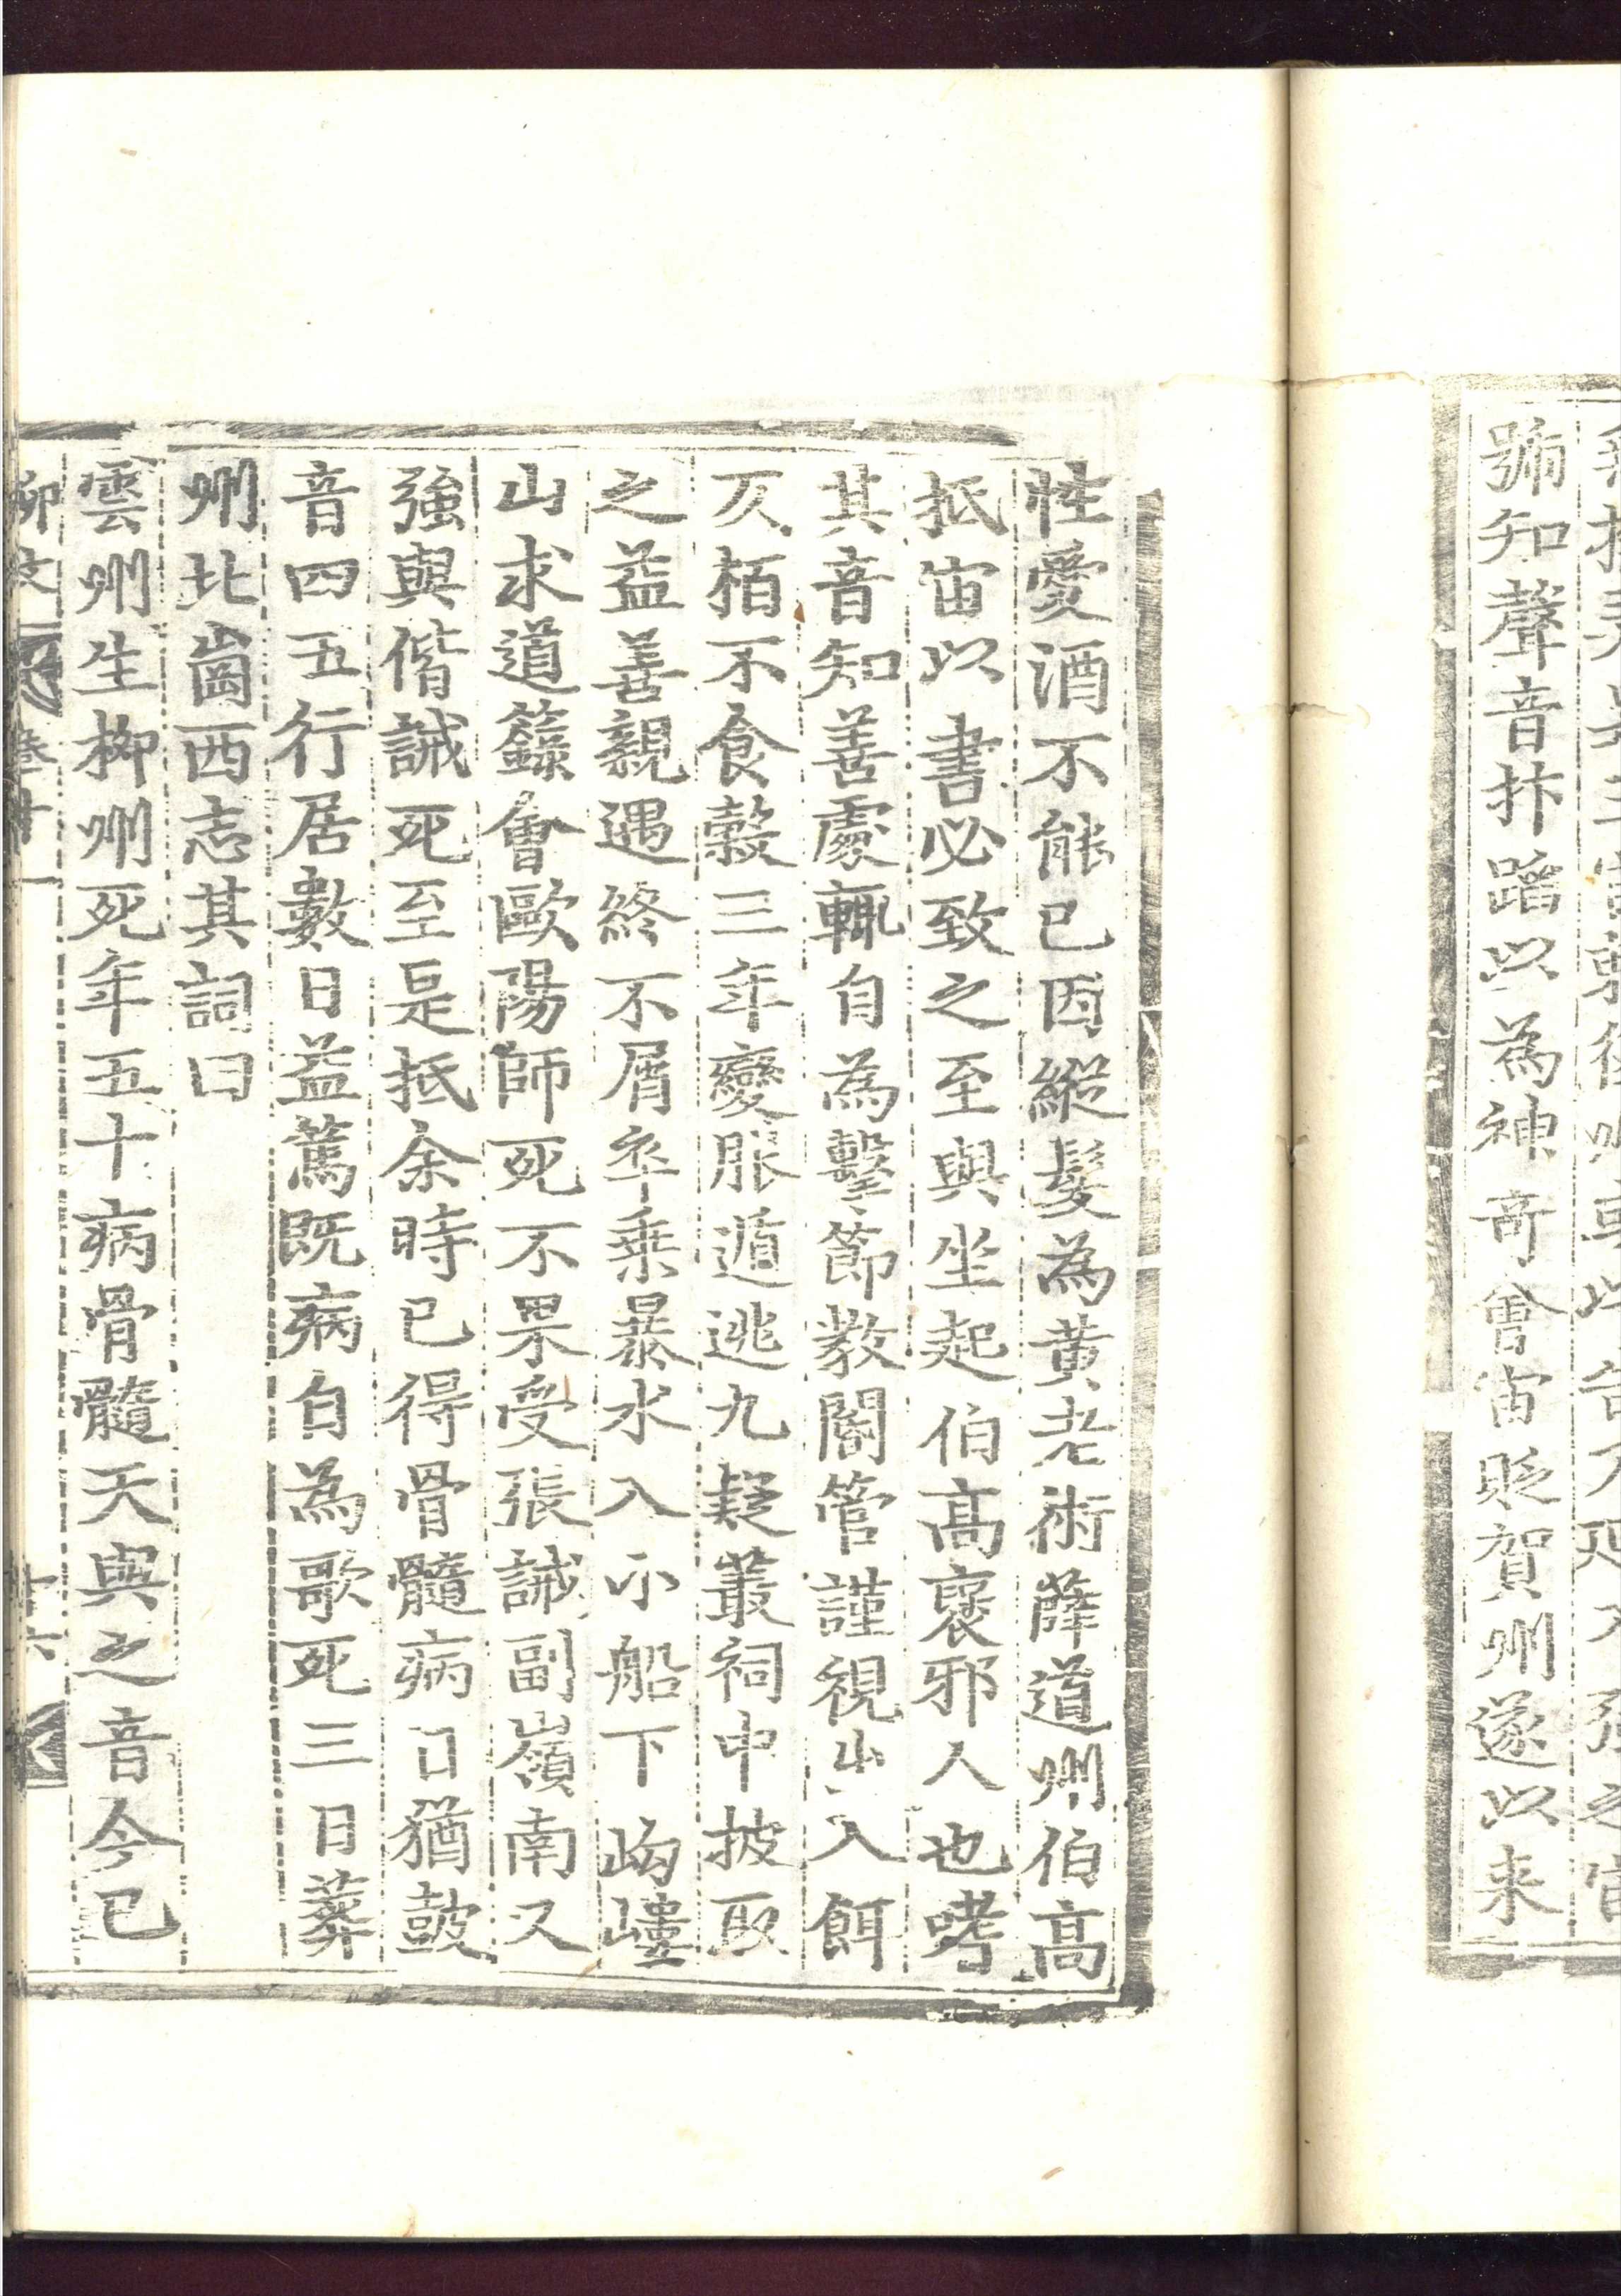 號知聲音抃蹈以為神奇會宙貶賀州遂以来
性愛酒不能已因縱髮為黄老術薛道州伯高
抵宙以書必致之至與坐起伯高褒邪人也哮
其音知善處輒自為擊節教閽管謹視出入餌
仄栢不食穀三年變脹遁逃九疑叢祠中披取
之益善親遇終不屑卒乗暴水入小船下岣嶁
山求道籙會歐陽師死不果受張誡副嶺南又
強與偕誡死至是抵余時已得骨髓病日猶鼓
音四五行居數日益篤既病自為歌死三日葬
州北崗西志其詞曰
雲州生柳州死年五十病骨髓天與之音今已
柳文 卷十一 十六